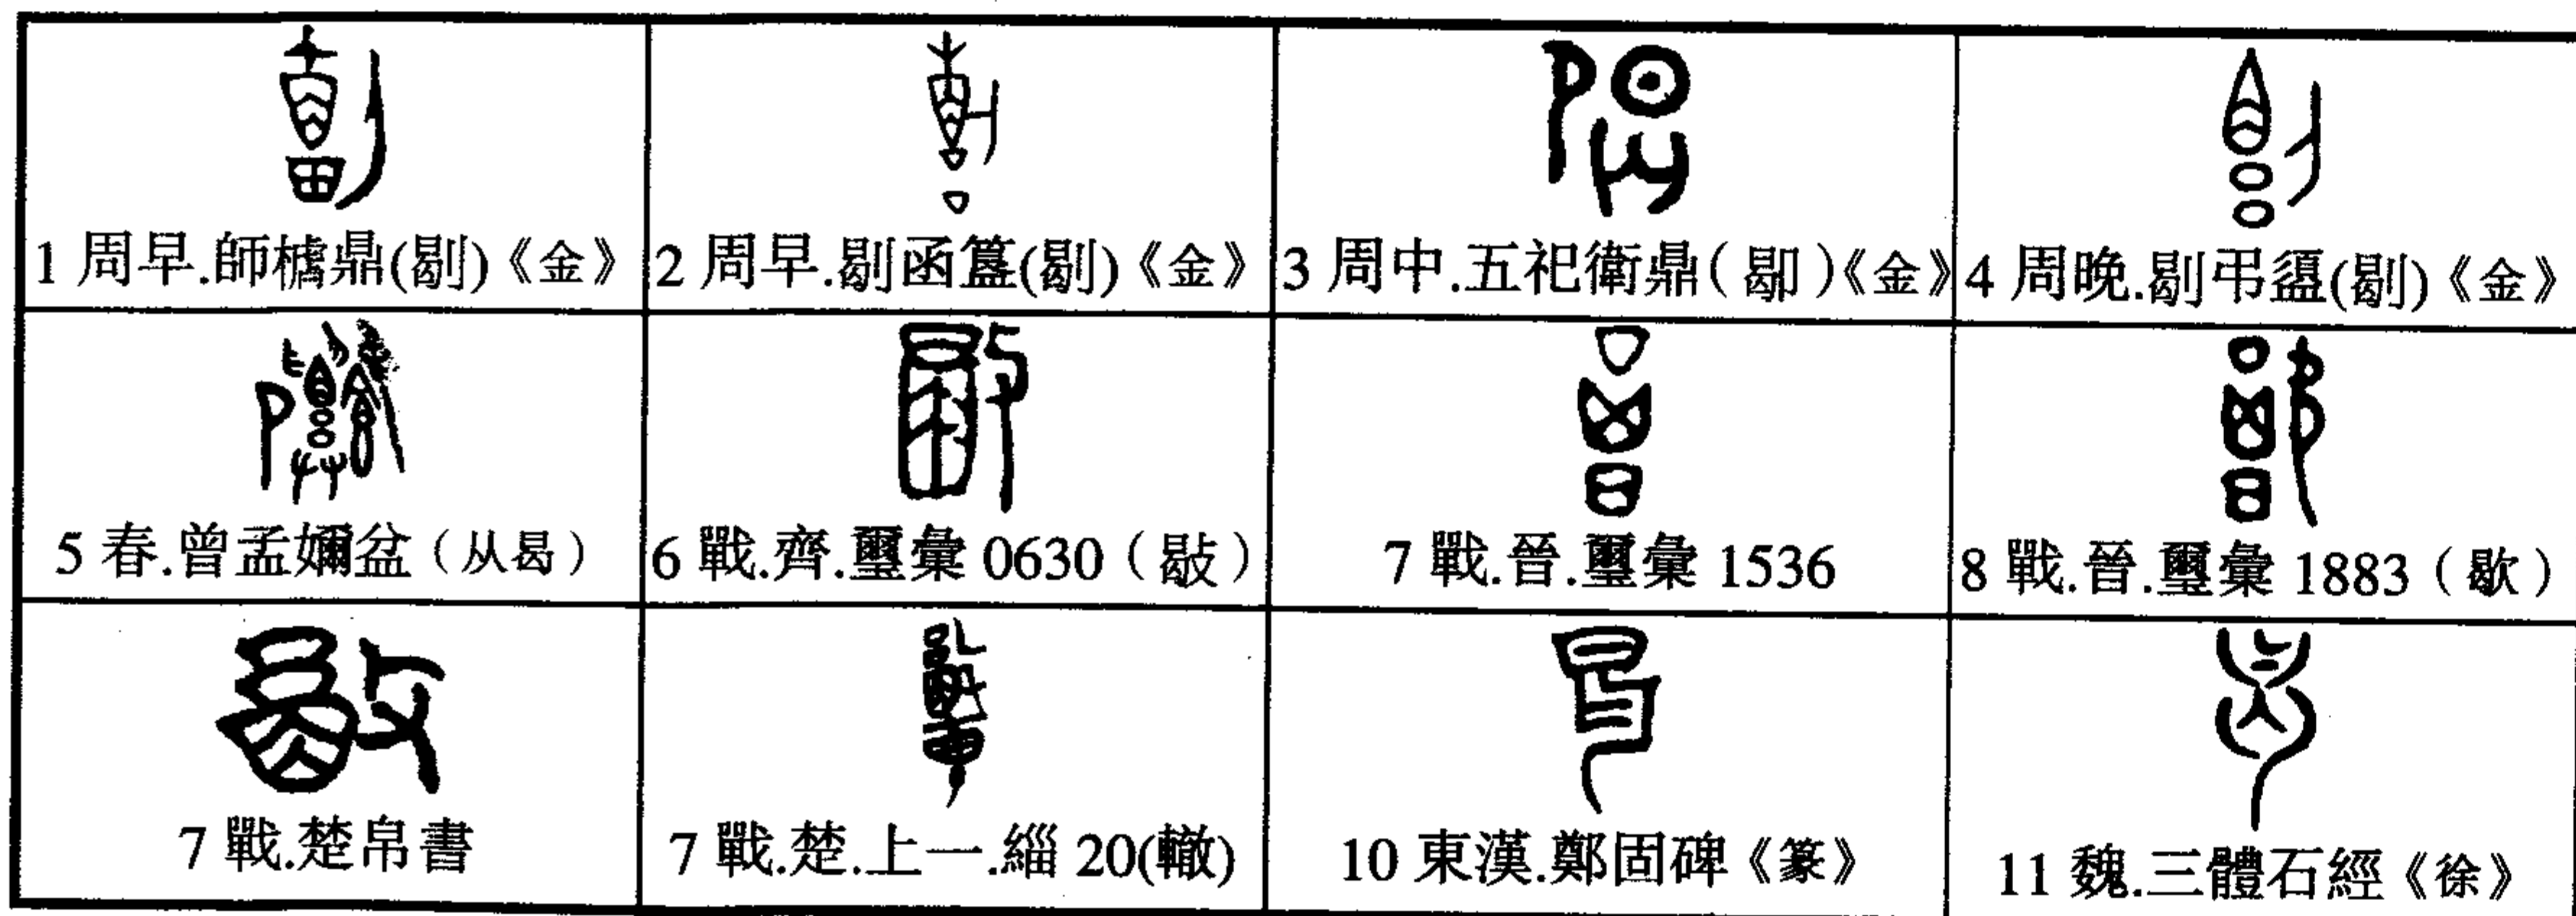 1 周早.師𣄰鼎(剔)《金》
2 周早.剔函簋(剔)《金》
3 周中.五祀衛鼎(鄓)《金》
4 周晚.剔弔盨(剔)《金》
5 春.曾孟嬭盆(从曷)
6 戰.齊.璽彙 0630(敡)
7 戰.晉.璽彙 1536
8 戰.晉.璽彙 1883(歇)
7 戰.楚帛書
7 戰.楚.上一.緇 20(轍)
10 東漢.鄭固碑《篆》
11 魏.三體石經《徐》